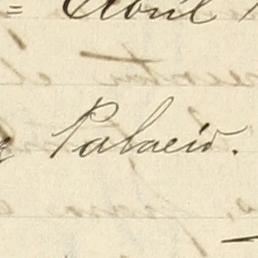 = Abril
Palacio.